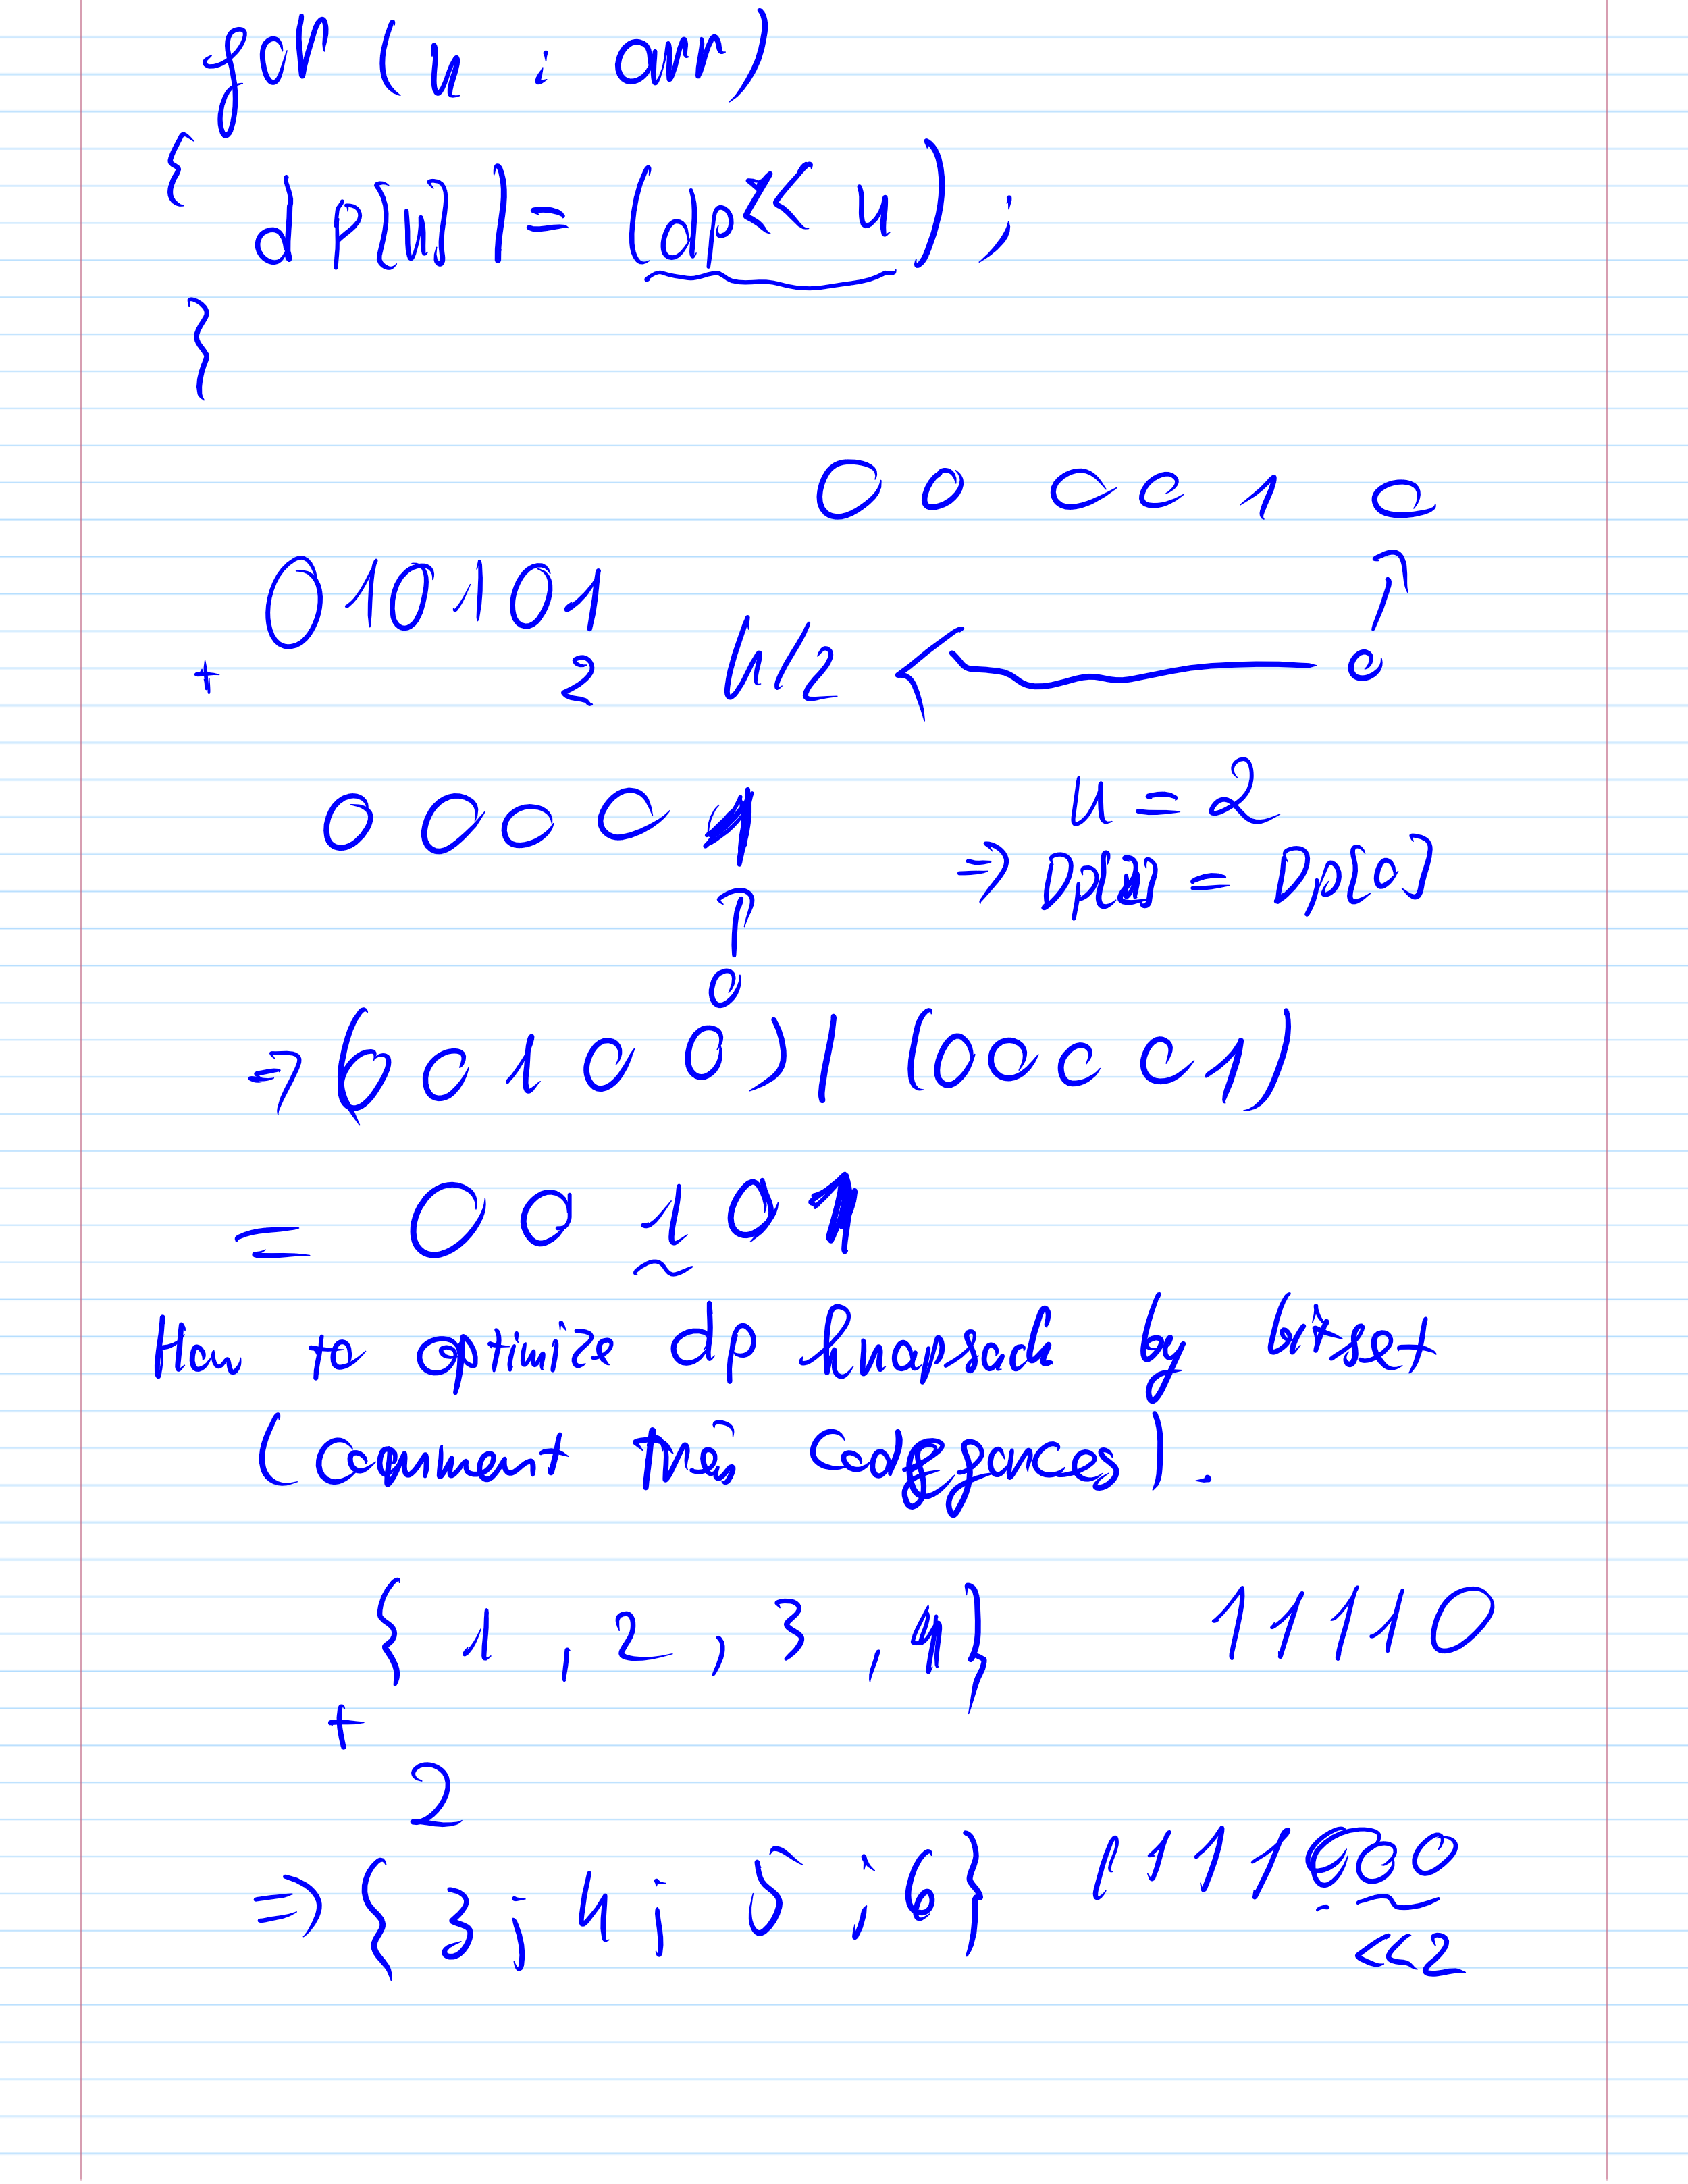 for (u : arr)
{
dp[u] |= (dp << u);
}
0 0 0 0 1 0
0 1 0 1 0 1
+ 2
0
0 0 0 0 1
u = 2
⇒ Dp[2] = Dp[0]
0
⇒ (0 0 1 0 0) | (0 0 0 0 1)
= 0 0 1 0 1
How to optimize dp knapsack by bitset
(comment trên codeforces).
{ 1 , 2 , 3 , 4 } 1 1 1 1 0
+
2
⇒ { 3 ; 4 ; 5 ; 6 } 1 1 1 1 0 0 0
<<2